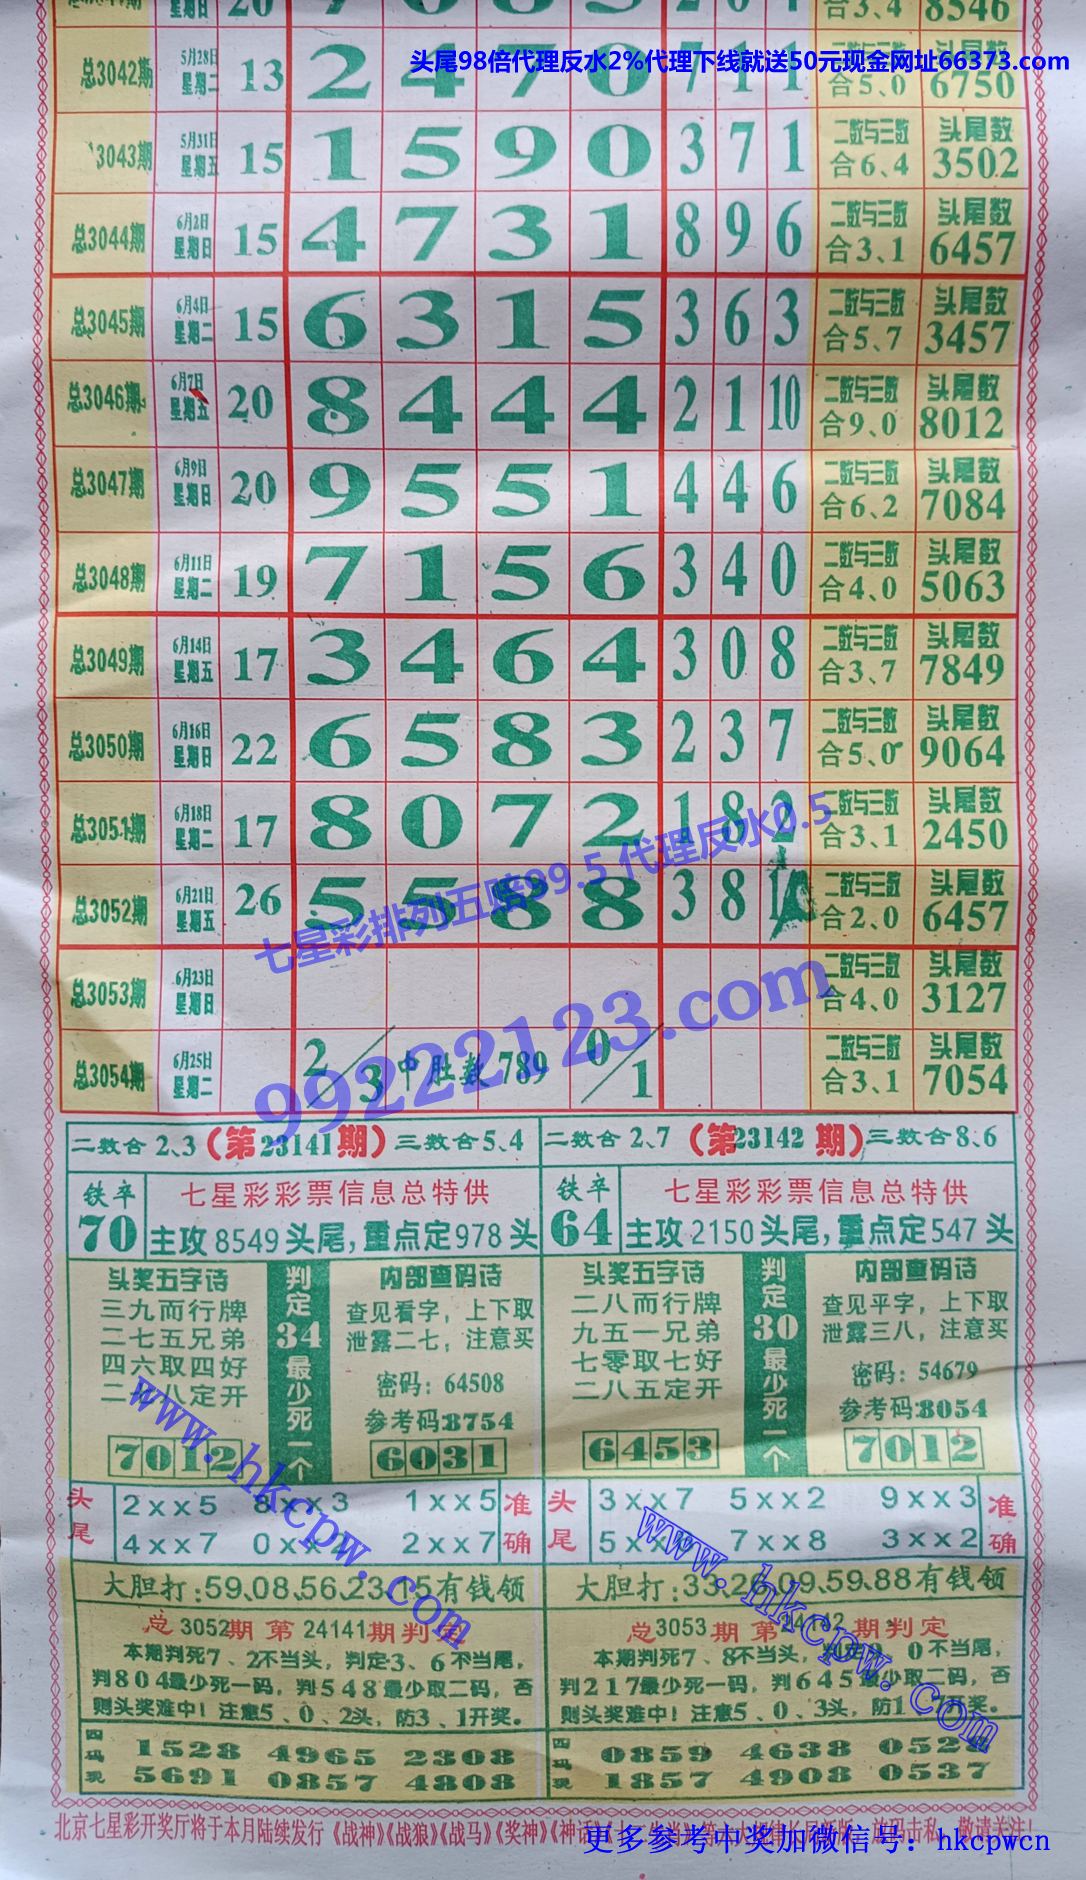 20 7 0 8 5 2 0 4 合3、4 8546
头尾98倍代理反水2%代理下线就送50元现金网址66373.com
总3042期 5月28日 星期二 13 2 4 7 0 7 1 1 二数与三数 合5、0 6750
3043期 5月31日 星期五 15 1 5 9 0 3 7 1 二数与三数 合6、4 头尾数 3502
总3044期 6月2日 星期日 15 4 7 3 1 8 9 6 二数与三数 合3、1 头尾数 6457
总3045期 6月4日 星期二 15 6 3 1 5 3 6 3 二数与三数 合5、7 头尾数 3457
总3046期 6月7日 星期五 20 8 4 4 4 2 1 10 二数与三数 合9、0 头尾数 8012
总3047期 6月9日 星期日 20 9 5 5 1 4 4 6 二数与三数 合6、2 头尾数 7084
总3048期 6月11日 星期二 19 7 1 5 6 3 4 0 二数与三数 合4、0 头尾数 5063
总3049期 6月14日 星期五 17 3 4 6 4 3 0 8 二数与三数 合3、7 头尾数 7849
总3050期 6月16日 星期日 22 6 5 8 3 2 3 7 二数与三数 合5、0 头尾数 9064
总3051期 6月18日 星期二 17 8 0 7 2 1 8 2 二数与三数 合3、1 头尾数 2450
总3052期 6月21日 星期五 26 5 5 8 8 3 8 二数与三数 合2、0 头尾数 6457
七星彩排列五赔99.5 代理反水0.5
总3053期 6月23日 星期日 二数与三数 合4、0 头尾数 3127
99222123.com
总3054期 6月25日 星期二 2/3 中肚数789 0/1 二数与三数 合3、1 头尾数 7054
二数合2、3(第23141期)三数合5、4
铁卒 70 七星彩彩票信息总特供
主攻8549头尾,重点定978头
头奖五字诗
三九而行牌
二七五兄弟
四六取四好
二八定开
7012
判定34最少死一个
内部查码诗
查见看字，上下取
泄露二七，注意买
密码：64508
参考码:8754
6031
头尾 2xx5 8xx3 1xx5 准确
4xx7 0xx 2xx7
大胆打:59、08、56、23、15有钱领
总3052期第24141期判定
本期判死7、2不当头，判定3、6不当尾，
判804最少死一码，判548最少取二码，否
则头奖难中！注意5、0、2头，防3、1开奖。
四码现 1528 4965 2308
5691 0857 4808
二数合2、7(第23142期)三数合8、6
铁卒 64 七星彩彩票信息总特供
主攻2150头尾,重点定547头
头奖五字诗
二八而行牌
九五一兄弟
七零取七好
二八五定开
6453
判定30最少死一个
内部查码诗
查见平字，上下取
泄露三八，注意买
密码：54679
参考码:8054
7012
头尾 3xx7 5xx2 9xx3 准确
5xx 7xx8 3xx2
大胆打:33、26、09、59、88有钱领
总3053期第24142期判定
本期判死7、8不当头，判定 、0不当尾，
判217最少死一码，判645最少取二码，否
则头奖难中！注意5、0、3头，防1、 开奖。
四码现 0859 4638 052
1857 4908 0537
www.hkcpw.com
www.hkcpw.com
北京七星彩开奖厅将于本月陆续发行《战神》《战狼》《战马》《奖神》《神话》 敬请关注！
更多参考中奖加微信号：hkcpwcn